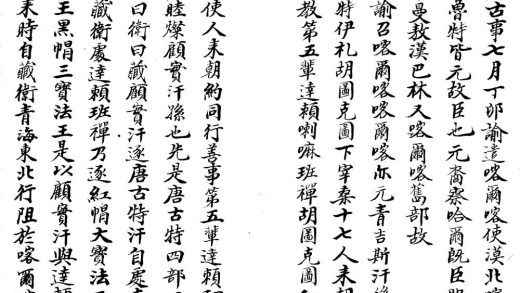 古事七月丁卯諭遣喀爾喀使漠北喀
魯特皆元故臣也元裔察哈爾既臣
曼敖漢巴林又喀爾喀舊部故
諭召喀爾喀喀爾喀亦元青吉斯汗
特伊礼胡圖克圖下宰桑十七人来
教第五輩達賴喇嘛班禪胡圖克圖
使人来朝約同行善事第五輩達賴
睦燦顧實汗孫也先是唐古特四部
曰衛曰藏顧實汗逐唐古特汗自處
藏衛處達賴班禪乃逐紅帽大寶法
王黑帽三寶法王是以顧實汗與達
来時自藏衛青海東北行阻於喀爾